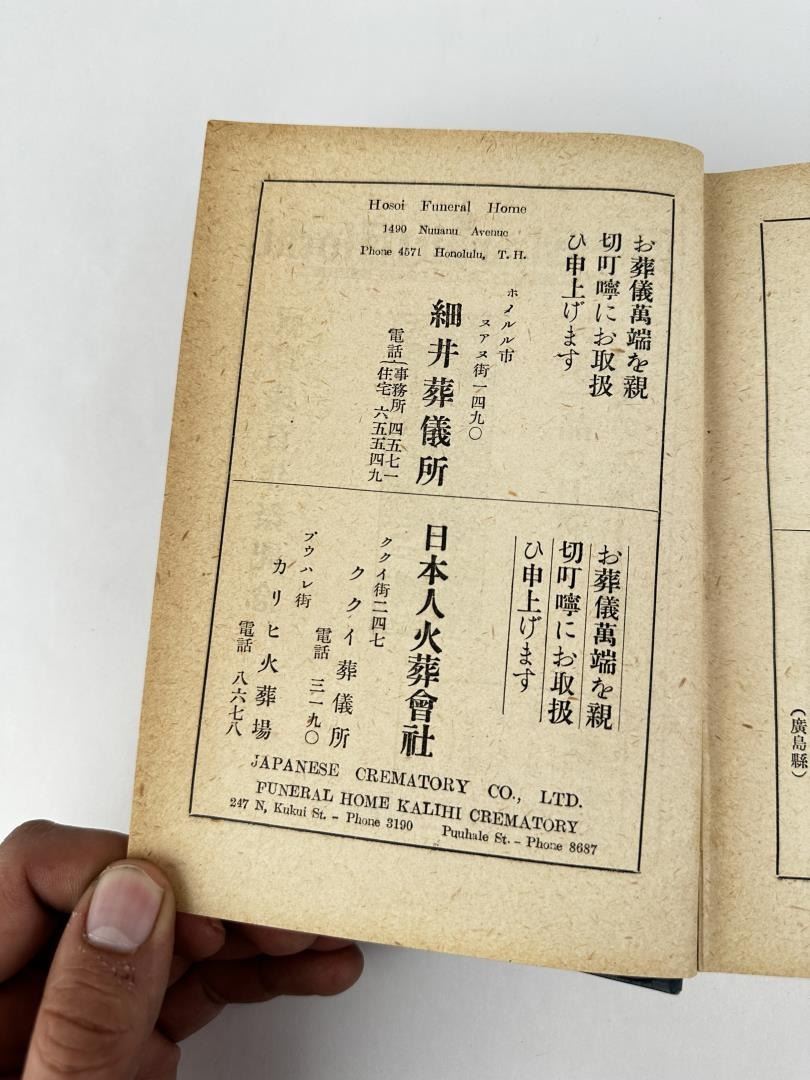 Hosoi Funeral Home
1490 Nuuanu Avenue
Phone 4571 Honolulu, T. H.
お葬儀萬端を親
切叮嚀にお取扱
ひ申上げます
ホノルル市
ヌアヌ街一四九〇
細井葬儀所
電話 事務所 四五七一
住宅 六五五四九
お葬儀萬端を親
切叮嚀にお取扱
ひ申上げます
日本人火葬會社
ククイ街二四七
ククイ葬儀所
電話 三一九〇
プウハレ街
カリヒ火葬場
電話 八六七八
JAPANESE CREMATORY CO., LTD.
FUNERAL HOME KALIHI CREMATORY
247 N, Kukui St. - Phone 3190 Puuhale St. - Phone 8687
(廣島縣)